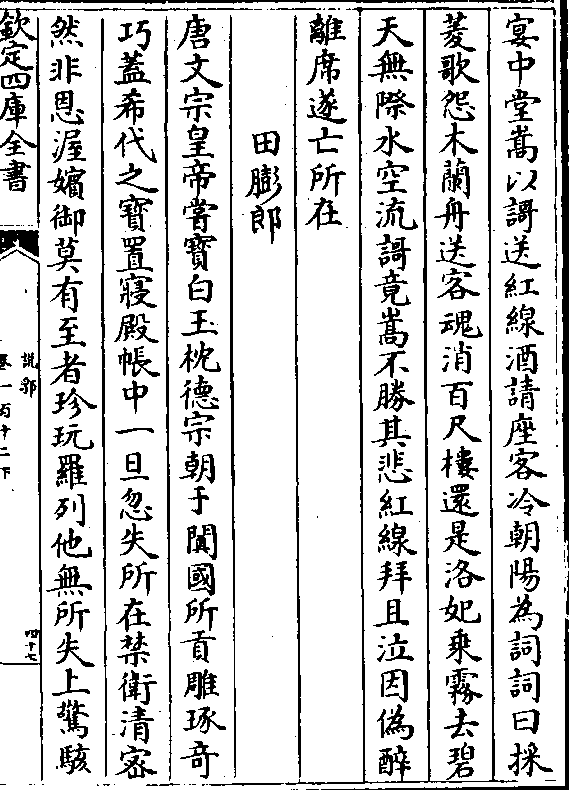 宴中堂嵩以謌送紅線酒請座客冷朝陽為詞詞曰採
菱歌怨木蘭舟送客魂消百尺樓還是洛妃乗霧去碧
天無際水空流謌竟嵩不勝其悲紅線拜且泣因偽醉
離席遂亡所在
田膨郎
唐文宗皇帝嘗寶白玉枕德宗朝于闐國所貢雕琢竒
巧蓋希代之寶置寢殿帳中一旦忽失所在禁衛清宻
然非恩渥嬪御莫有至者珍玩羅列他無所失上驚駭
欽定四庫全書
說郛
卷一百十二下
四十七